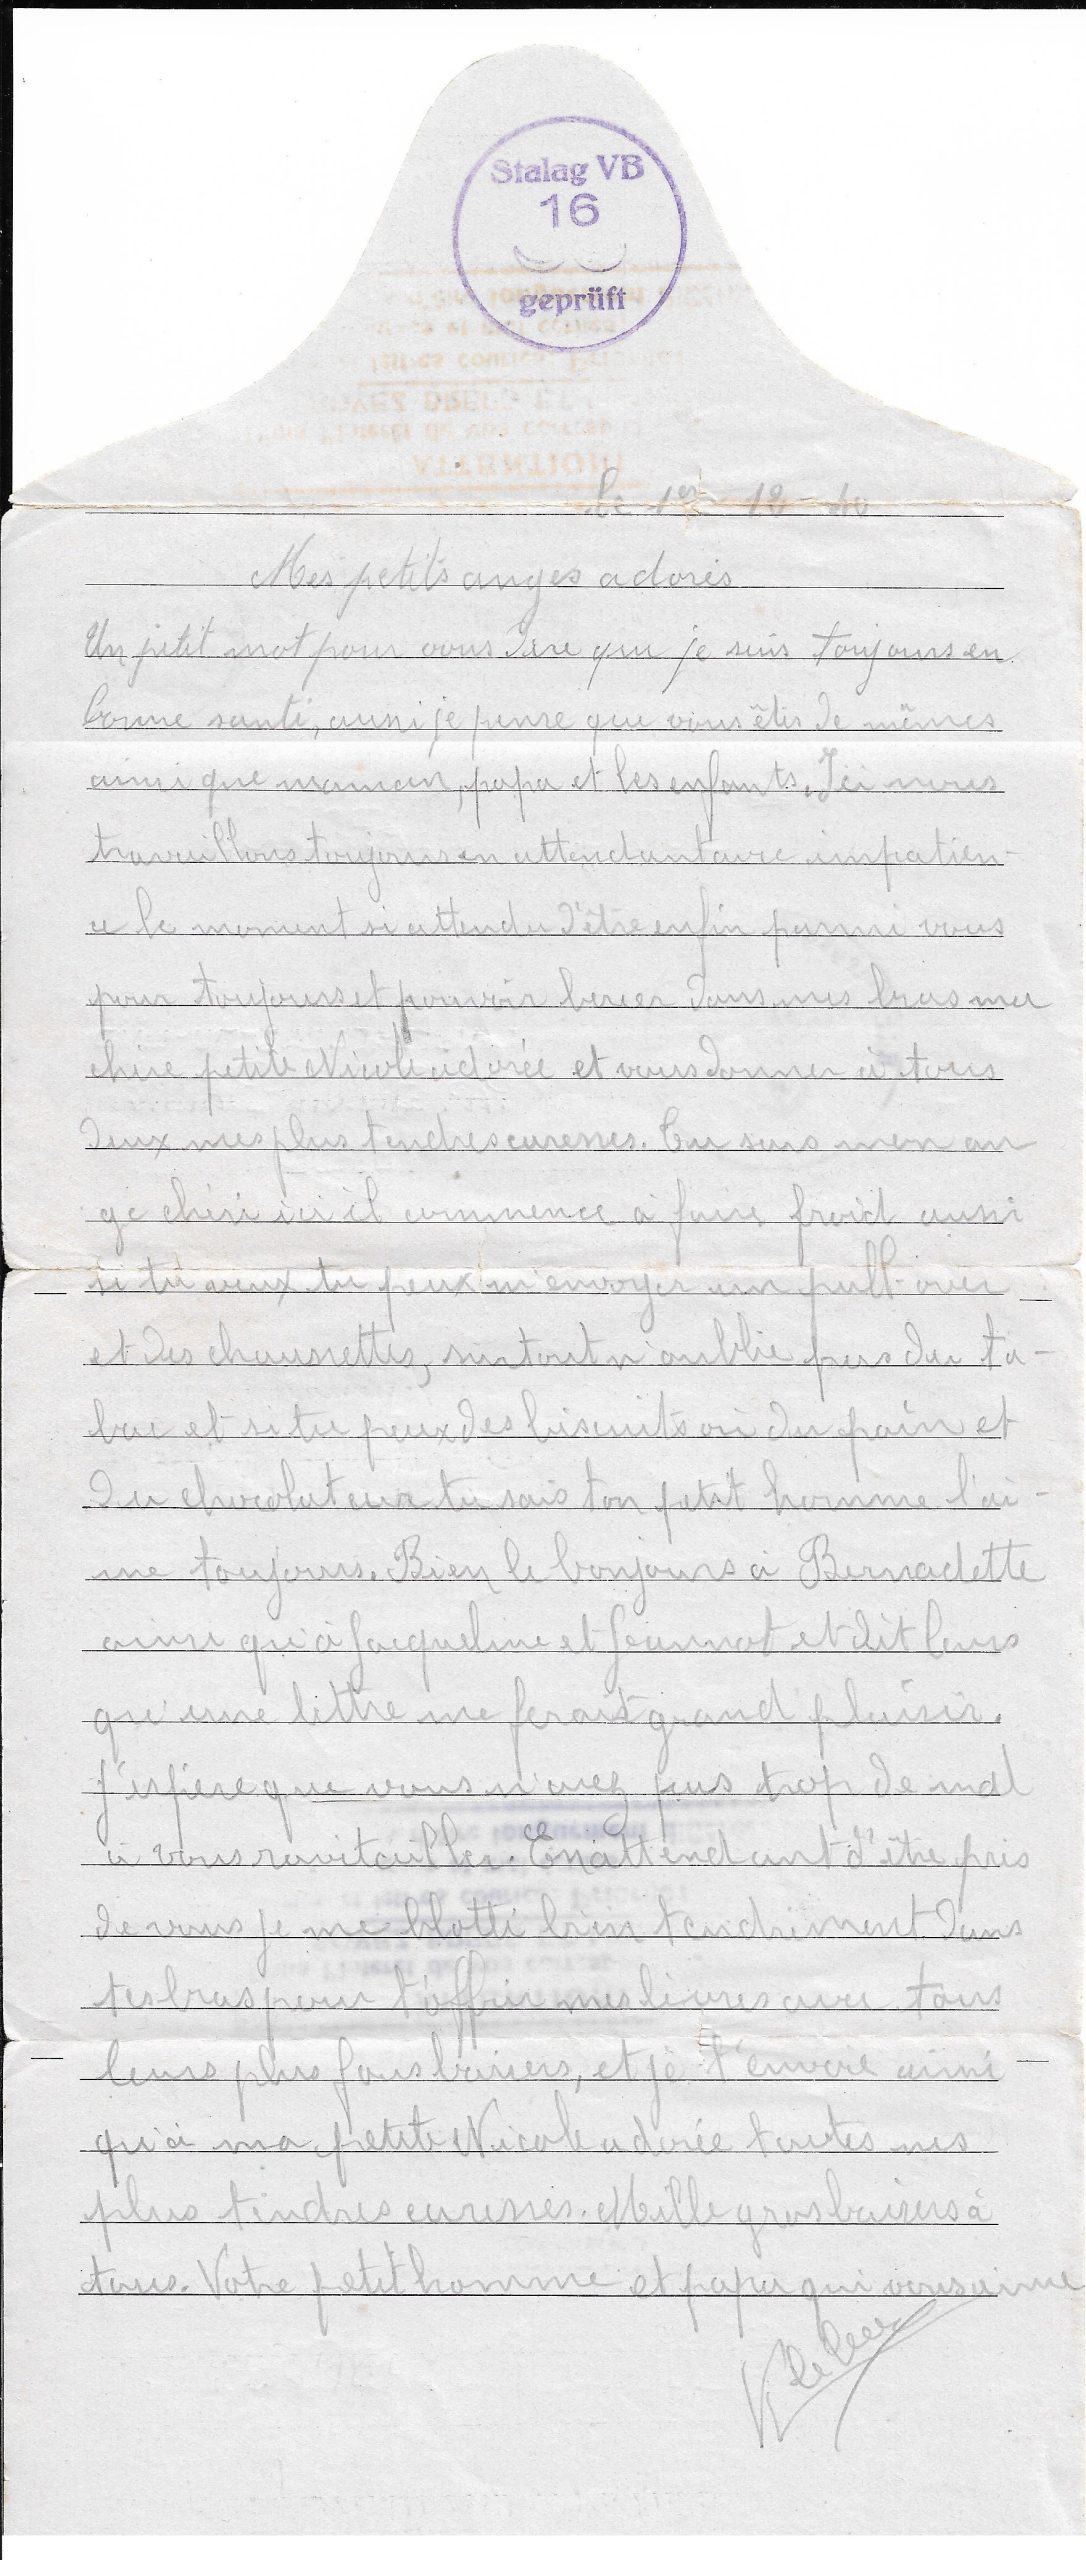 Stalag VB
16
geprüft
Le 1er - 12 - 40
Mes petits anges adorés
Un petit mot pour vous dire que je suis toujours en
bonne santé, aussi je pense que vous êtes de mêmes
ainsi que maman, papa et les enfants. Ici nous
travaillons toujours en attendant avec impatien-
ce le moment si attendu d'être enfin parmi vous
pour toujours et pouvoir bercer dans mes bras ma
chère petite Nicole adorée et vous donner à tous
deux mes plus tendres caresses. Tu sais mon an
ge chéri ici il commence à faire froid aussi
si tu veux tu peux m'envoyer un pull-over
et des chaussettes, surtout n'oublie pas du ta-
bac et si tu peux des biscuits ou du pain et
du chocolat car tu sais ton petit homme l'ai-
me toujours. Bien le bonjours à Bernadette
ainsi qu'à Jacqueline et Jeannot et dit leurs
qu'une lettre me ferait grand plaisir.
J'espère que vous n'avez pas trop de mal
à vous ravitailler. En attendant d'être près
de vous je me blotti bien tendrement dans
tes bras pour t'offrir mes lèvres avec tous
leurs plus fous baisers, et je t'envoie ainsi
qu'à ma petite Nicole adorée toutes mes
plus tendres caresses. Mille gros baisers à
tous. Votre petit homme et papa qui vous aime